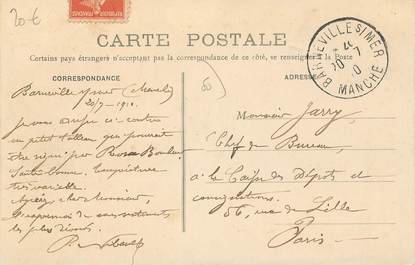 20 €
CARTE POSTALE
Certains pays étrangers n'acceptant pas la correspondance de ce côté, se renseigner à la Poste
CORRESPONDANCE
ADRESSE
BARNEVILLE S/ MER
20 - 7
10
MANCHE
Barneville s/mer (Manche)
20/7 - 1910.
Je vous envoie ci-contre
un petit tableau qui pourrait
être signé par Rosa Bonheur.
Santé bonne. Température
très variable.
Agréez, cher Monsieur,
l'expression de mes sentiments
les plus dévoués.
Monsieur Jarry,
Chef de Bureau,
à la Caisse des Dépôts et
consignations.
56, rue de Lille
Paris